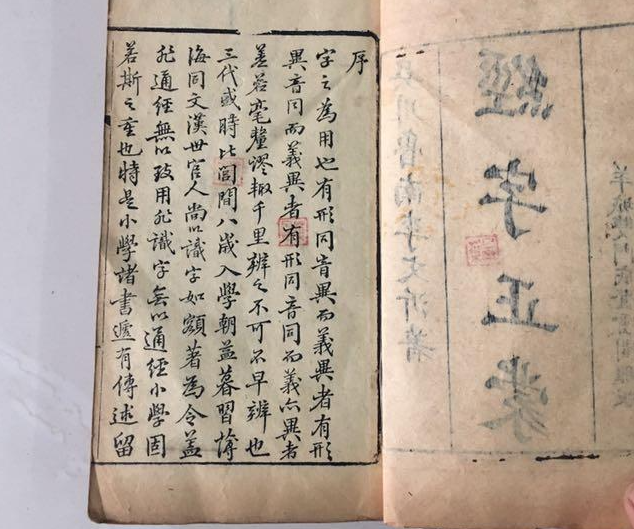 經字正蒙
川魯南李文沂著
序
字之為用也有形同音異而義異者有形
異音同而義異者有形同音同而義亦異者
差若毫釐謬輒千里辨之不可不早辨也
三代盛時比閭間八歲入學朝益暮習薄
海同文漢世官人尚以識字如額著為令蓋
非通經無以致用非識字無以通經小學固
若斯之重也特是小學諸書遞有傳述留